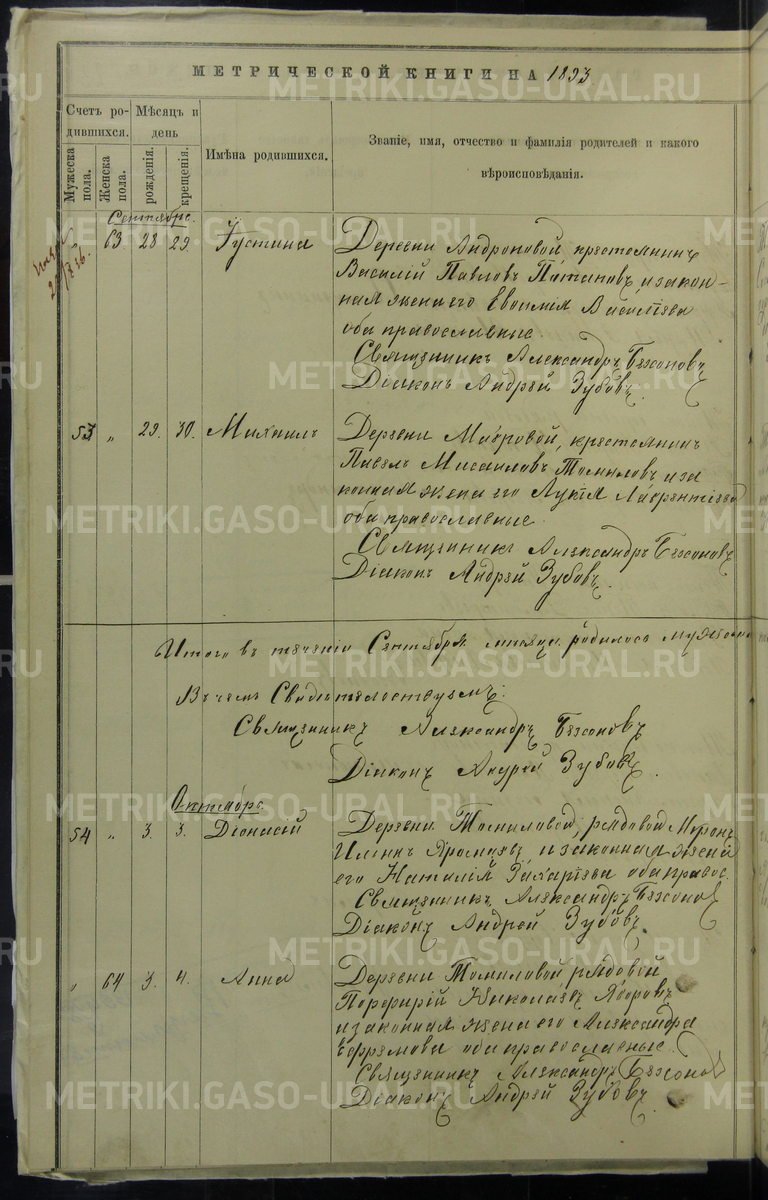 МЕТРИЧЕСКОЙ КНИГИ НА 1893
Счетъ родившихся. Мѣсяцъ и день
Мужеска пола. Женска пола. рожденія. крещенія. Имѣна родившихся. Званіе, имя, отчество и фамилія родителей и какого вѣроисповѣданія.
Сентябрь.
63 28 29. Іустина Деревни Андроновой, крестьянинъ
Василій Павловъ Потаповъ и закон-
ная жена его Евѳимія Василіева
оба православные.
Священникъ Александръ Безсоновъ
Діаконъ Андрей Зубовъ.
53 „ 29. 30. Михаилъ Деревни Мавровой, крестьянинъ
Павелъ Мисаиловъ Томиловъ и за
конная жена его Лукія Лаврентіева
оба православные.
Священникъ Александръ Безсоновъ
Діаконъ Андрей Зубовъ.
Итого въ теченіи Сентября мѣсяца родилось мужеска
Въ чемъ Свидѣтельствуемъ:
Священникъ Александръ Безсоновъ
Діаконъ Андрей Зубовъ.
Октябрь.
54 „ 3. 3. Діонисій Деревни Томиловой, рядовой Миронъ
Ильинъ и законная жена
его Наталія оба правос.
Священникъ Александръ Безсонов
Діаконъ Андрей Зубовъ.
„ 64 3. 4. Анна Деревни Томиловой, рядовой
Порфирій Николаевъ
и законная жена его Александра
Ефремова оба православные.
Священникъ Александръ Безсонов
Діаконъ Андрей Зубовъ.
METRIKI.GASO-URAL.RU